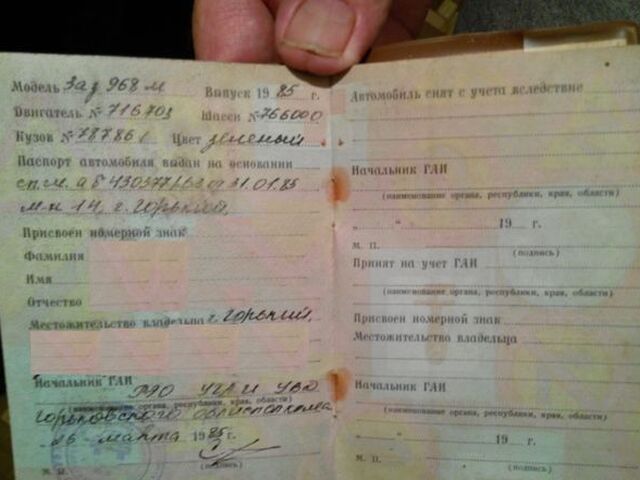 Модель Заз 968 м Выпуск 1985 г.
Двигатель № 716703 Шасси № 766000
Кузов № Цвет зеленый
Паспорт автомобиля выдан на основании
31.01.85
14, г. Горький,
Присвоен номерной знак
Фамилия
Имя
Отчество
Местожительство владельца г. Горький,
Начальник ГАИ УВД
(наименование органа, республики, края, области)
Горьковского облисполкома
„26“ марта 1985 г.
М. П. (подпись)
Автомобиль снят с учета вследствие
Начальник ГАИ
(наименование органа, республики, края, области)
„ “ 19 г.
М. П. (подпись)
Принят на учет ГАИ
(наименование органа, республики, края, области)
Присвоен номерной знак
Местожительство владельца
Начальник ГАИ
(наименование органа, республики, края, области)
„ “ 19 г.
М. П. (подпись)